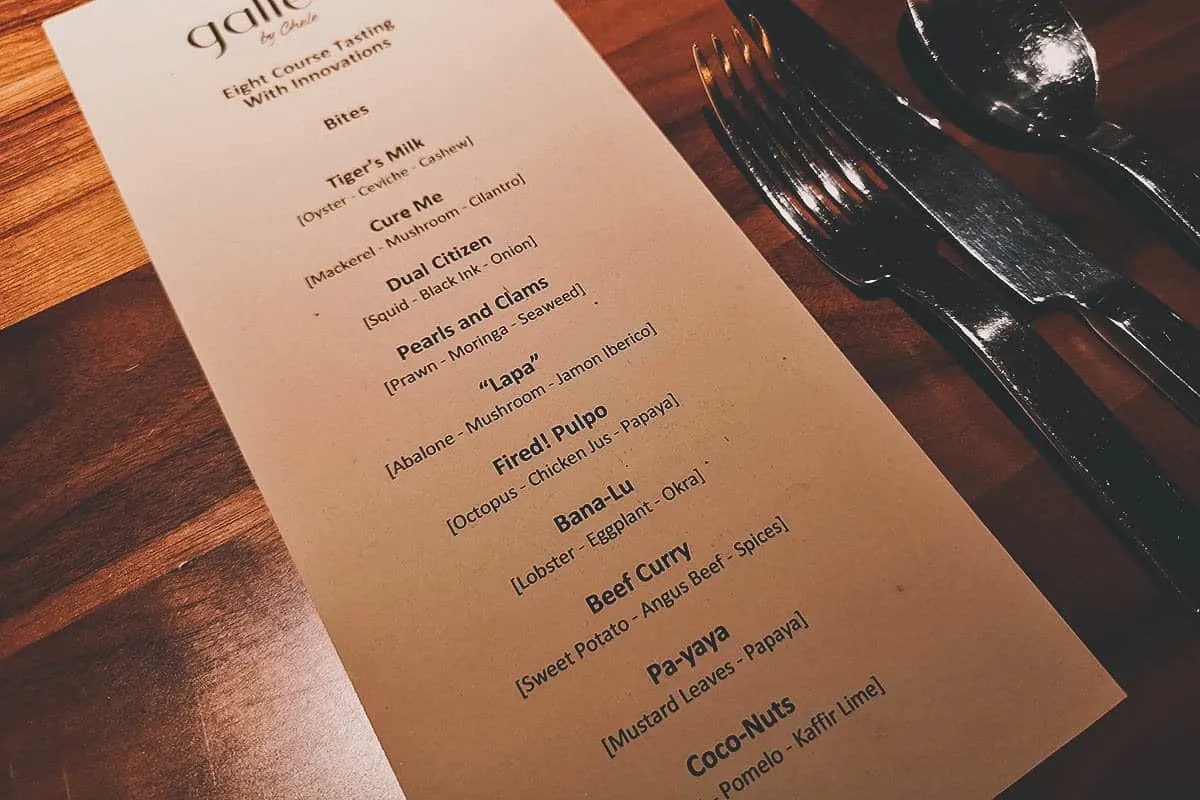 by Chele
Eight Course Tasting
With Innovations
Bites
Tiger's Milk
[Oyster - Ceviche - Cashew]
Cure Me
[Mackerel - Mushroom - Cilantro]
Dual Citizen
[Squid - Black Ink - Onion]
Pearls and Clams
[Prawn - Moringa - Seaweed]
“Lapa”
[Abalone - Mushroom - Jamon Iberico]
Fired! Pulpo
[Octopus - Chicken Jus - Papaya]
Bana-Lu
[Lobster - Eggplant - Okra]
Beef Curry
[Sweet Potato - Angus Beef - Spices]
Pa-yaya
[Mustard Leaves - Papaya]
Coco-Nuts
- Pomelo - Kaffir Lime]